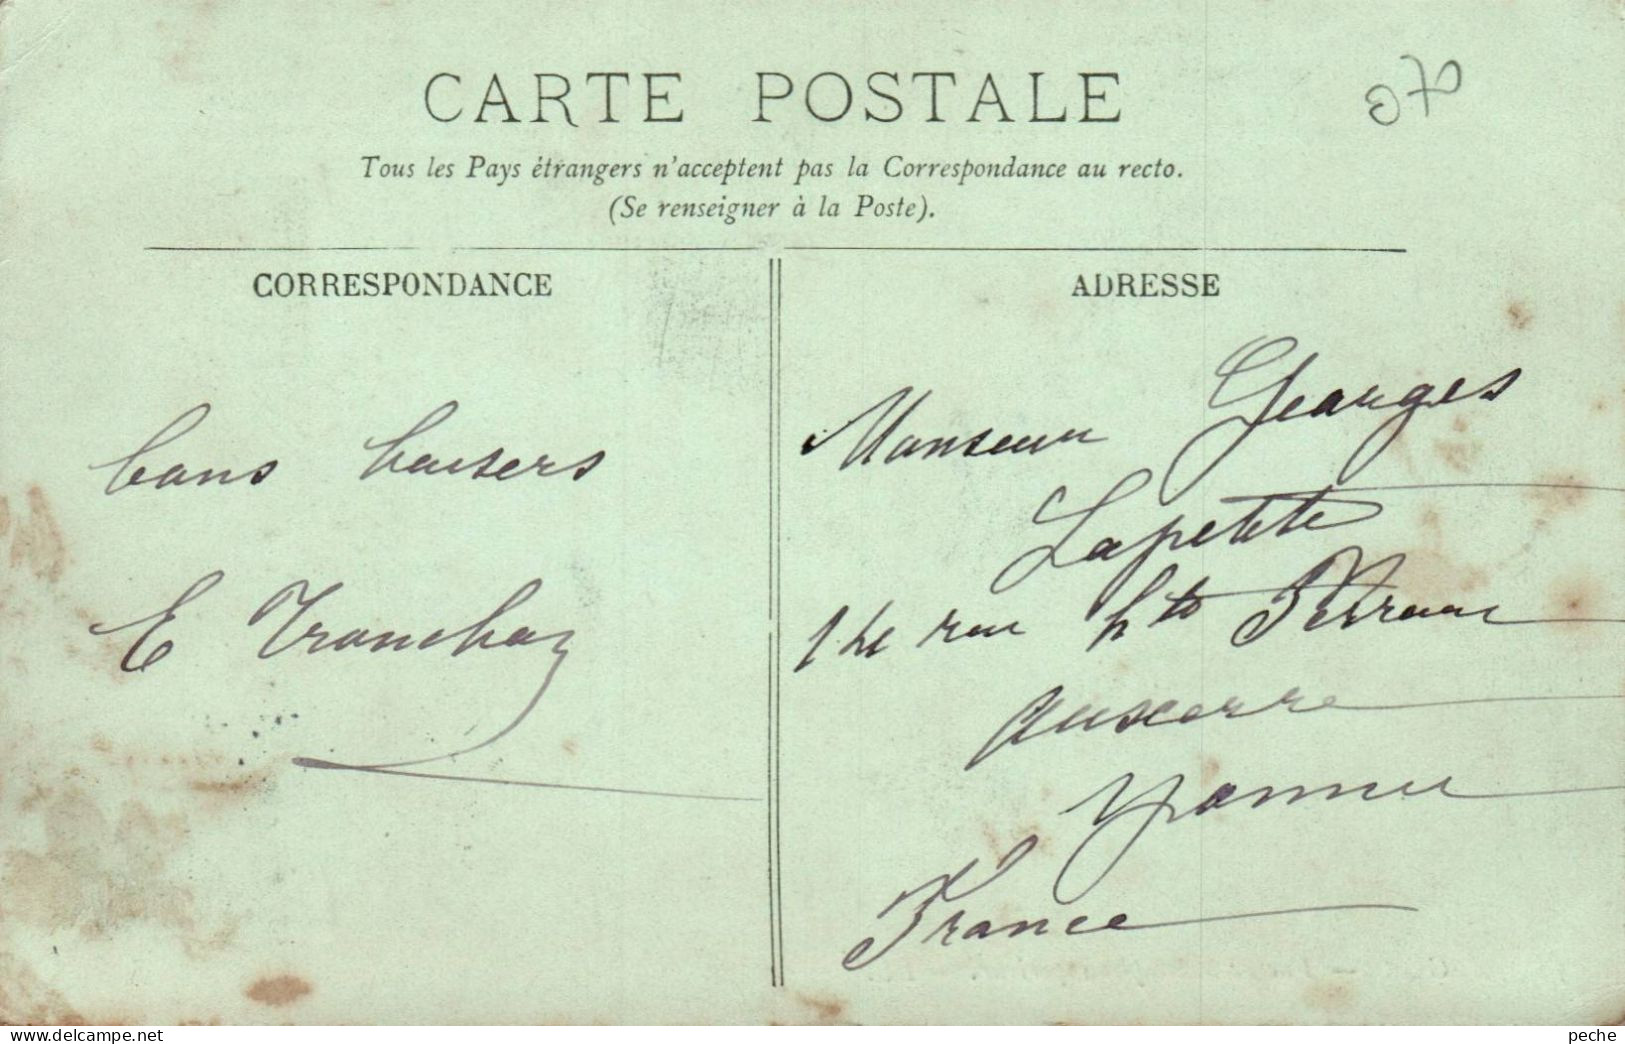 070
CARTE POSTALE
Tous les Pays étrangers n'acceptent pas la Correspondance au recto.
(Se renseigner à la Poste).
CORRESPONDANCE
bons baisers
E Tronchoy
ADRESSE
Monsieur Georges
Lapetite
rue
Auxerre
Yonne
France
www.delcampe.net
peche